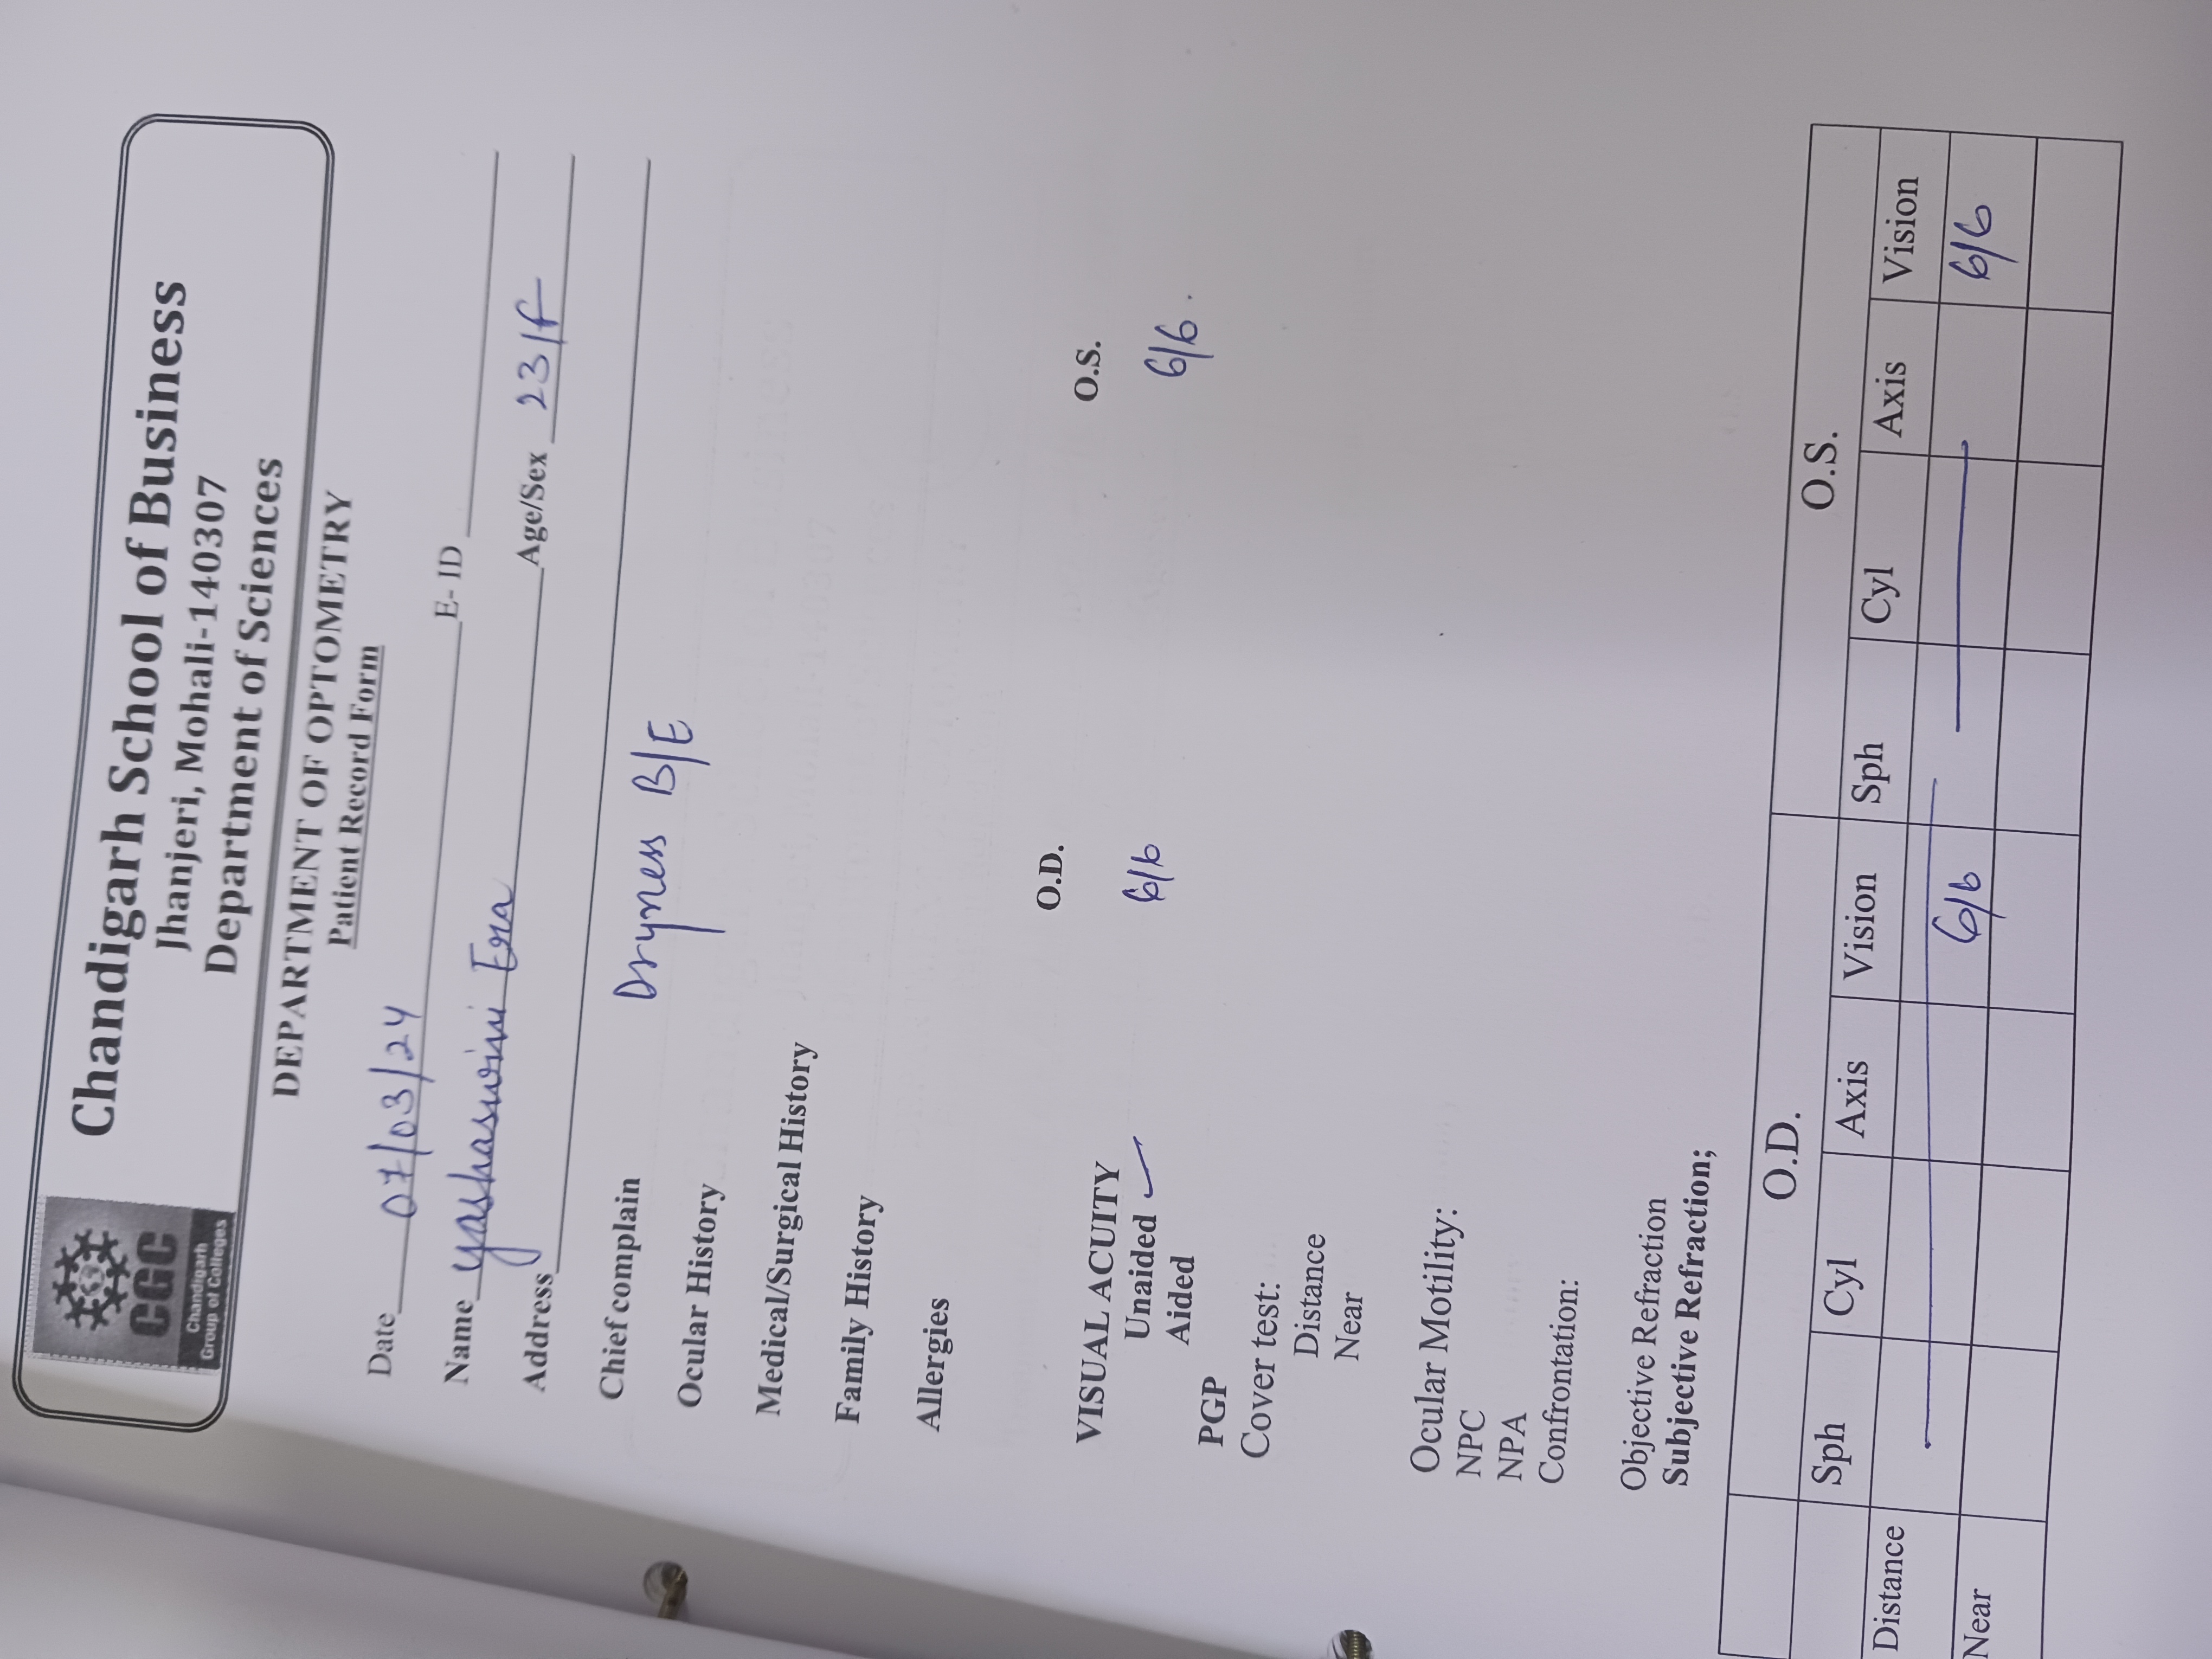 CGC
Chandigarh
Group of Colleges
Chandigarh School of Business
Jhanjeri, Mohali-140307
Department of Sciences
DEPARTMENT OF OPTOMETRY
Patient Record Form
Date 07/03/24 E- ID
Name Yashaswini Era Age/Sex 23/F
Address
Chief complain Dryness B/E
Ocular History
Medical/Surgical History
Family History
Allergies
O.D. O.S.
VISUAL ACUITY
Unaided ✓ 6/6 6/6.
Aided
PGP
Cover test:
Distance
Near
Ocular Motility:
NPC
NPA
Confrontation:
Objective Refraction
Subjective Refraction;
O.D. O.S.
Sph Cyl Axis Vision Sph Cyl Axis Vision
Distance 6/6 6/6
Near